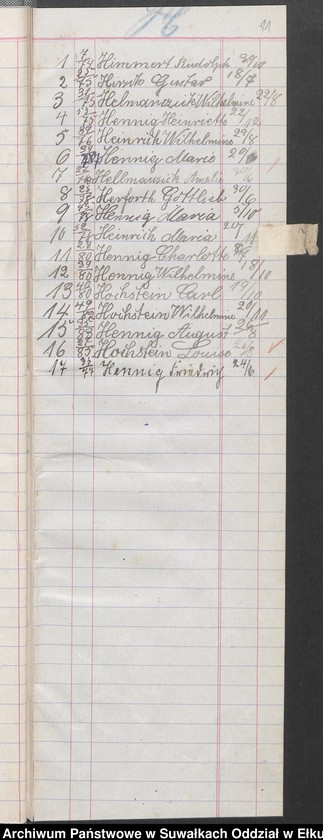 H 11
1 7/74 Himmert Rudolph 29/10
2 /75 Hirsch Gustav 18/7
3 /75 Helmanczik Wilhelmine 22/8
4 /75 Hennig Heinriette 22/12
5 /76 Heinrich Wilhelmine 29/8
6 Hennig Maria
7 Hellmanzik Amalie
8 /78 Herforth Gottlieb 30/6
9 /78 Hennig Maria 3/10
10 Heinrich Maria 20/11
11 /80 Hennig Charlotte
12 /80 Hennig Wilhelmine 18/10
13 /80 Hochstein Carl 19/10
14 /82 Hochstein Wilhelmine 20/11
15 /83 Hennig August
16 /85 Hochstein Louise
17 Hennig Friedrich 24/6
Archiwum Państwowe w Suwałkach Oddział w Ełku